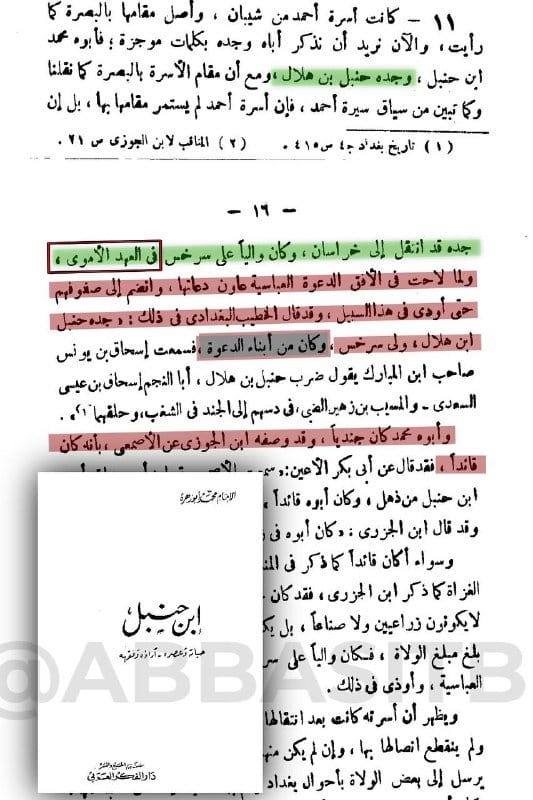 ١١ — كانت أسرة أحمد من شيبان ، وأصل مقامها بالبصرة كما
رأيت ، والآن نريد أن نذكر أباه وجده بكلمات موجزة ؛ فأبوه محمد
ابن حنبل ، وجده حنبل بن هلال ، ومع أن مقام الأسرة بالبصرة كما نقلنا
وكما تبين من سياق سيرة أحمد ، فإن أسرة أحمد لم يستمر مقامها بها ، بل إن
(١) تاريخ بغداد ج٤ ص٤١٥ . (٢) المناقب لابن الجوزى ص ٢١ .
— ١٦ —
جده قد انتقل إلى خراسان ، وكان والياً على سرخس فى العهد الأموى ،
ولما لاحت فى الأفق الدعوة العباسية عاون دعاتها ، وانضم إلى صفوفهم
حتى أوذى فى هذا السبيل ، وقد قال الخطيب البغدادى فى ذلك : « جده حنبل
ابن هلال ، ولى سرخس ، وكان من أبناء الدعوة ، فسمعت إسحاق بن يونس
صاحب ابن المبارك يقول ضرب حنبل بن هلال ، أبا النجم إسحاق بن عيسى
السعدى - والمسيب بن زهير الضبى ، فى دسهم إلى الجند فى الشغب ، وحلقهما (١) » .
وأبوه محمد كان جندياً ، وقد وصفه ابن الجوزى عن الأصمعى ، بأنه كان
قائداً ، فقد قال عن أبى بكر الأعين : «
ابن حنبل من ذهل ، وكان أبوه قائداً ،
وقد قال ابن الجزرى : « كان أبوه فى
وسواء أكان قائداً كما ذكر فى
الغزاة كما ذكر ابن الجزرى ، فقد كان
لا يكونون زراعيين ولا صناعاً ، بل
بلغ مبلغ الولاة ، فكان والياً على
العباسية ، وأوذى فى ذلك .
ويظهر أن أسرته كانت بعد انتقالها
ولم ينقطع اتصالها بها ، وإن لم يكن
يرسل إلى بعض الولاة بأحوال بغداد
الإمام محمد أبو زهرة
ابن حنبل
حياته وعصره - آراؤه وفقهه
دار الفكر العربي
@ABBASIIB